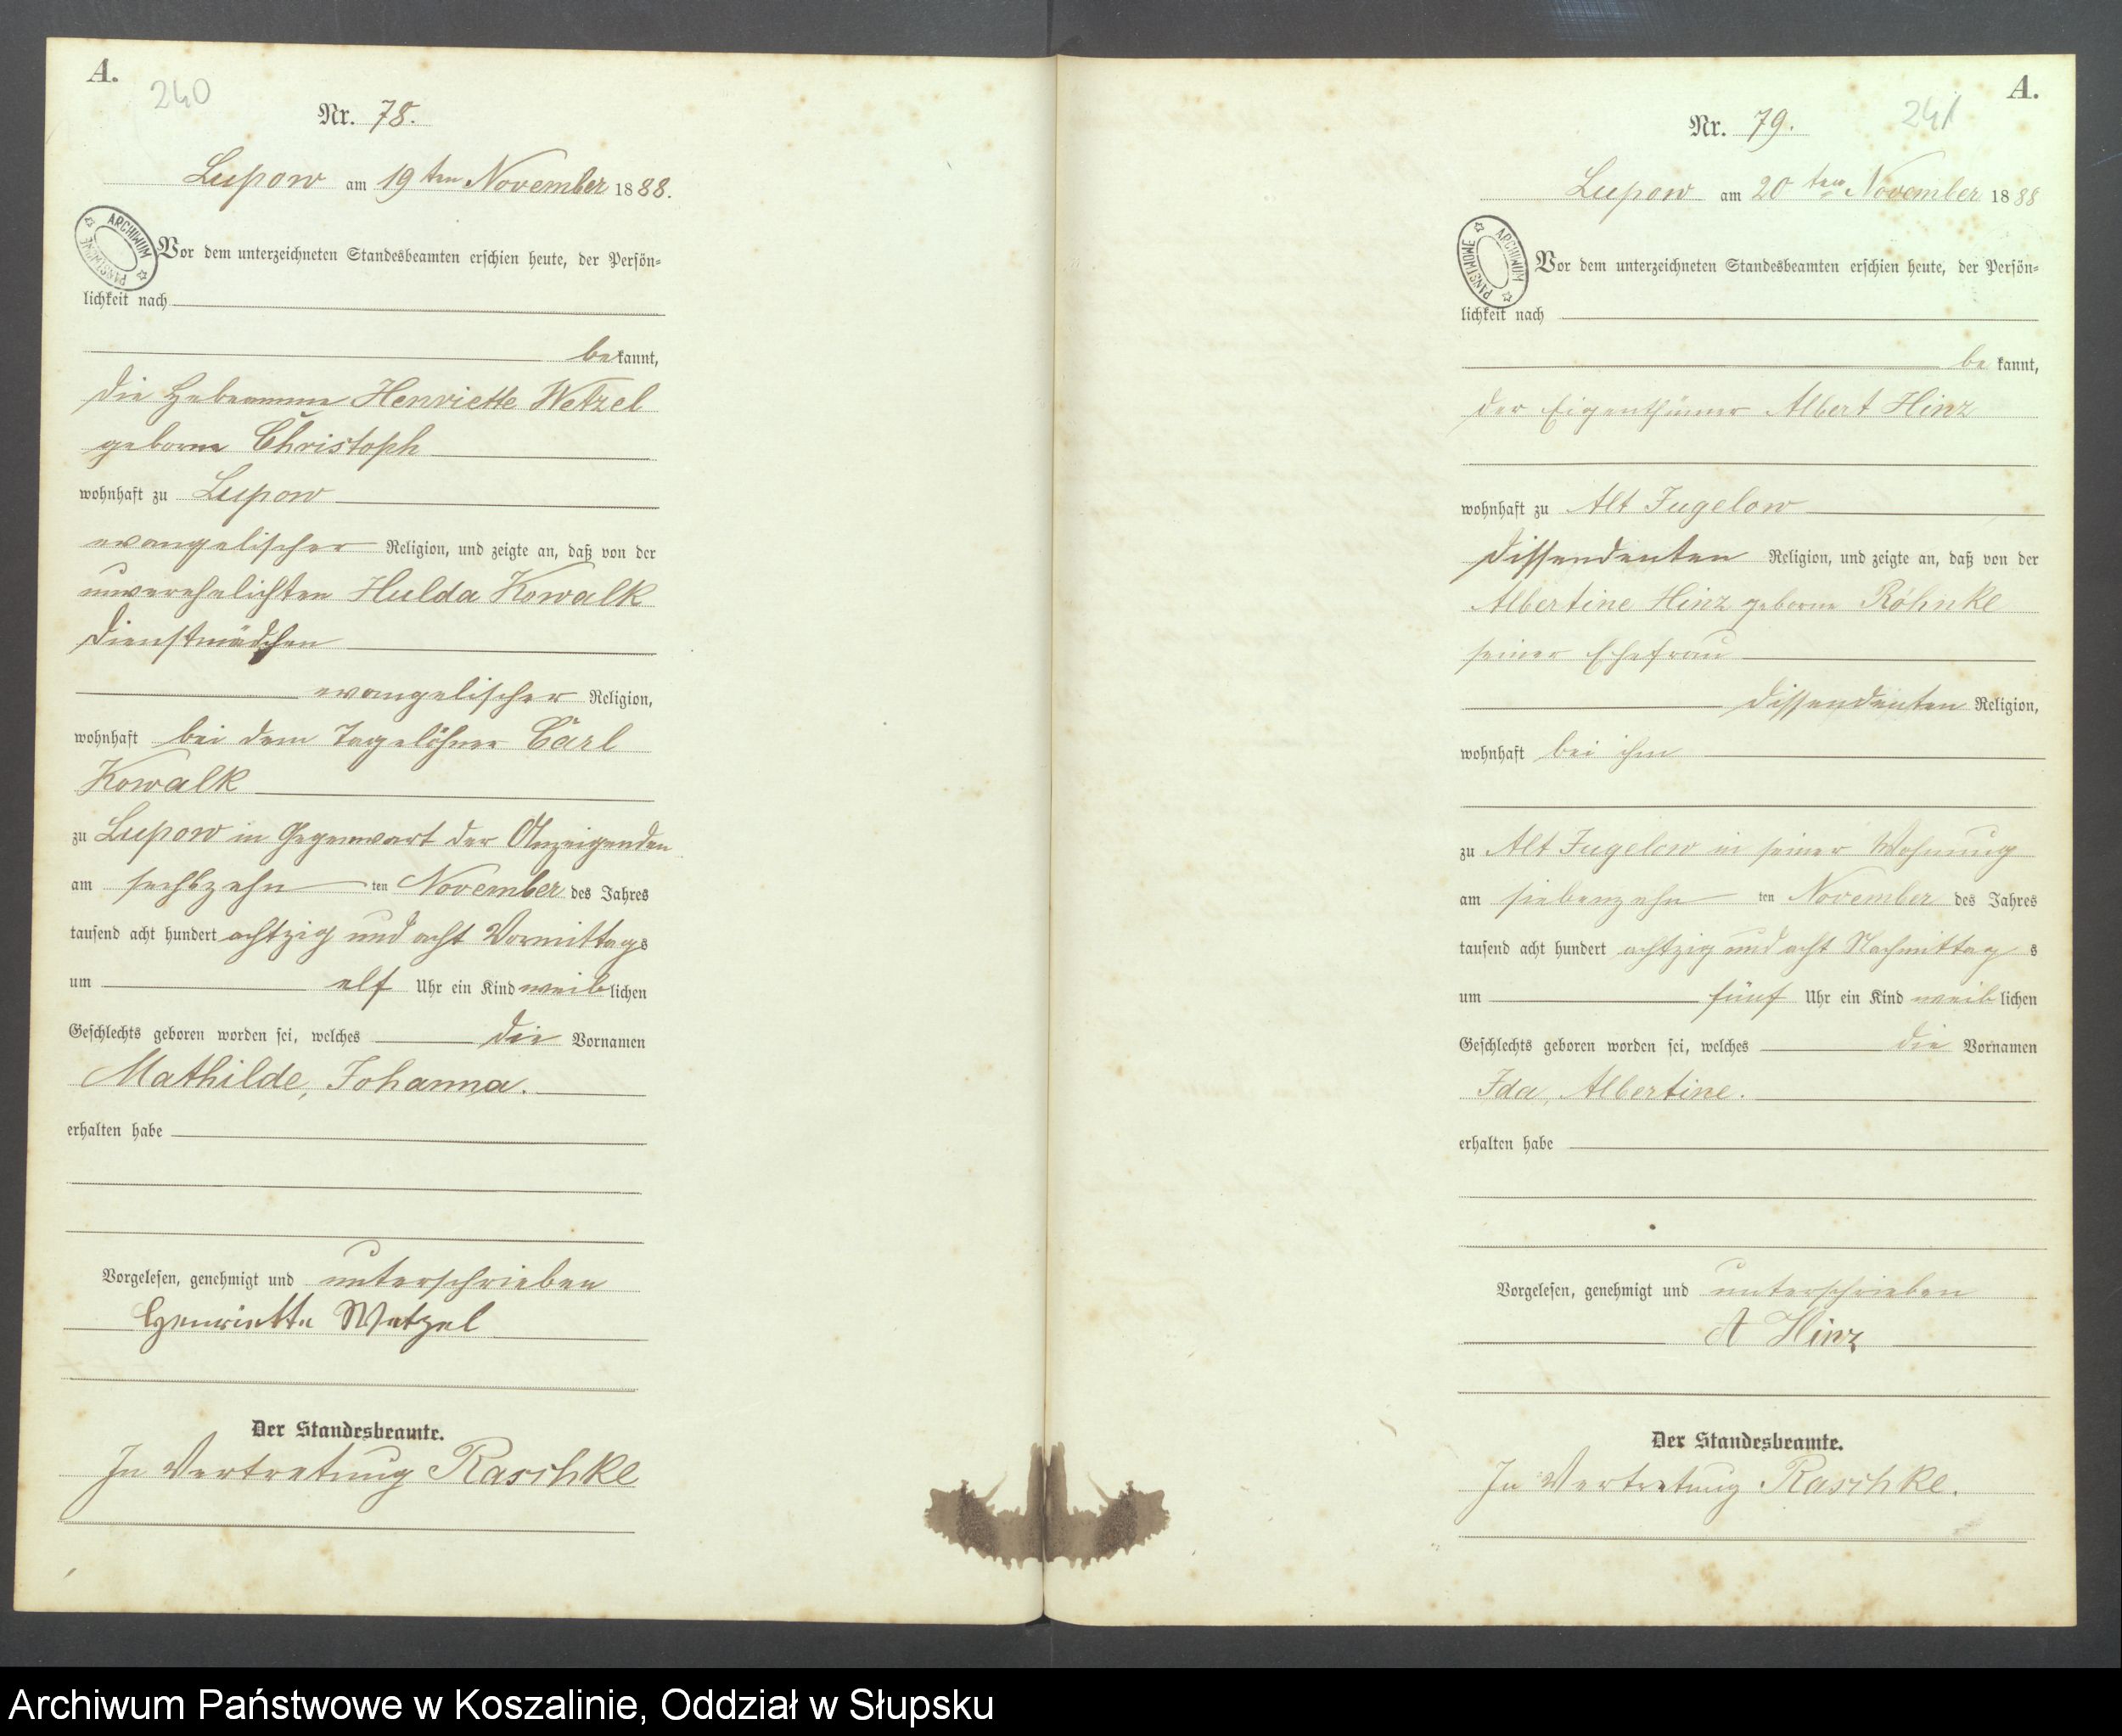 A.
240
Nr. 78.
Lupow am 19 ten November 1888.
ARCHIWUM PAŃSTWOWE
Vor dem unterzeichneten Standesbeamten erschien heute, der Persön-
lichkeit nach
bekannt,
die Hebeamme Henriette Wetzel
geborne Christoph
wohnhaft zu Lupow
evangelischer Religion, und zeigte an, daß von der
unverehelichten Hulda Kowalk
Dienstmädchen
evangelischer Religion,
wohnhaft bei dem Tagelöhner Carl
Kowalk
zu Lupow in Gegenwart der Anzeigenden
am sechszehn ten November des Jahres
tausend acht hundert achtzig und acht Vormittags
um elf Uhr ein Kind weiblichen
Geschlechts geboren worden sei, welches die Vornamen
Mathilde, Johanna.
erhalten habe
Vorgelesen, genehmigt und unterschrieben
Henriette Wetzel
Der Standesbeamte.
In Vertretung Raschke
A.
241
Nr. 79.
Lupow am 20 ten November 1888
ARCHIWUM PAŃSTWOWE
Vor dem unterzeichneten Standesbeamten erschien heute, der Persön-
lichkeit nach
bekannt,
der Eigenthümer Albert Hinz
wohnhaft zu Alt Jugelow
Dissendenten Religion, und zeigte an, daß von der
Albertine Hinz geborne Röhnke
seiner Ehefrau
Dissendenten Religion,
wohnhaft bei ihm
zu Alt Jugelow in seiner Wohnung
am siebenzehn ten November des Jahres
tausend acht hundert achtzig und acht Nachmittags
um fünf Uhr ein Kind weiblichen
Geschlechts geboren worden sei, welches die Vornamen
Ida, Albertine.
erhalten habe
Vorgelesen, genehmigt und unterschrieben
A Hinz
Der Standesbeamte.
In Vertretung Raschke.
Archiwum Państwowe w Koszalinie, Oddział w Słupsku